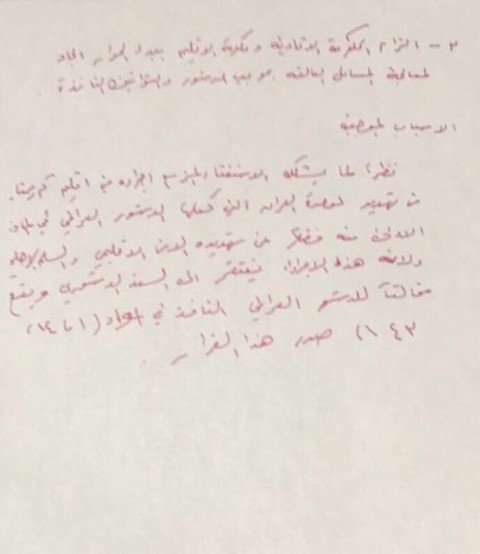 ٣- التزام الحكومة الاتحادية وحكومة الاقليم ببدء الحوار الجاد
لمعالجة المسائل العالقة بموجب الدستور والقوانين النافذة
الاسباب الموجبة
نظراً لما يشكله الاستفتاء المزمع اجراءه في اقليم كردستان
من تهديد لوحدة العراق التي كفلها الدستور العراقي في المادة
الاولى منه فضلاً عن تهديده الامن الاقليمي والسلم الاهلي
ولانه هذا الاجراء يفتقر الى السند الدستوري ويقع
مخالفاً للدستور العراقي النافذ في المواد (١
١٤٣) صدر هذا القرار.